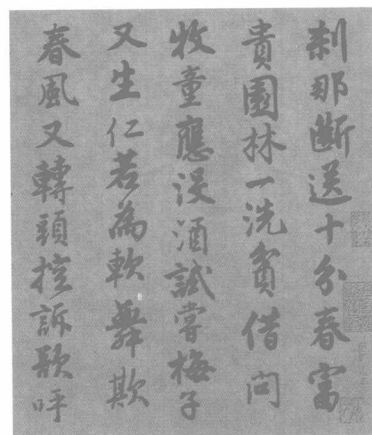 刹那斷送十分春富
貴園林一洗貧借問
牧童應没酒試嘗梅子
又生仁若為軟舞欺
春風又轉頭控訴欲呼